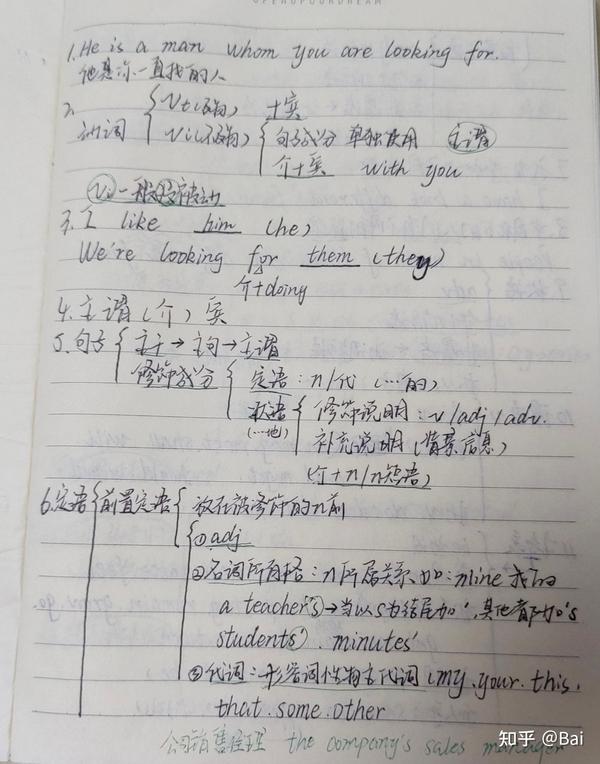 OPENUPYOURDREAM
1. He is a man whom you are looking for.
他是你一直找的人
2. Vt(及物) +实
动词 Vi(不及物) 句子成分 单独使用 主谓
介+实 with you
Vi一般没被动
3. I like him (he)
We're looking for them (they)
介+doing
4. 主谓(介)实
5. 句子 主干→主句→主谓
修饰成分 定语:n/代 (…的)
状语 修饰说明:v/adj/adv.
(…地) 补充说明(背景信息)
(介+n/n短语)
6. 定语 前置定语 放在被修饰的n前
①adj
②名词所有格:n所属关系.如:mine我的
a teacher's→当以s为结尾加',其他都加's
students'. minutes'
③代词:形容词性物主代词(my.your.this.
that some other
公司销售经理 the company's sales manager
知乎 @Bai